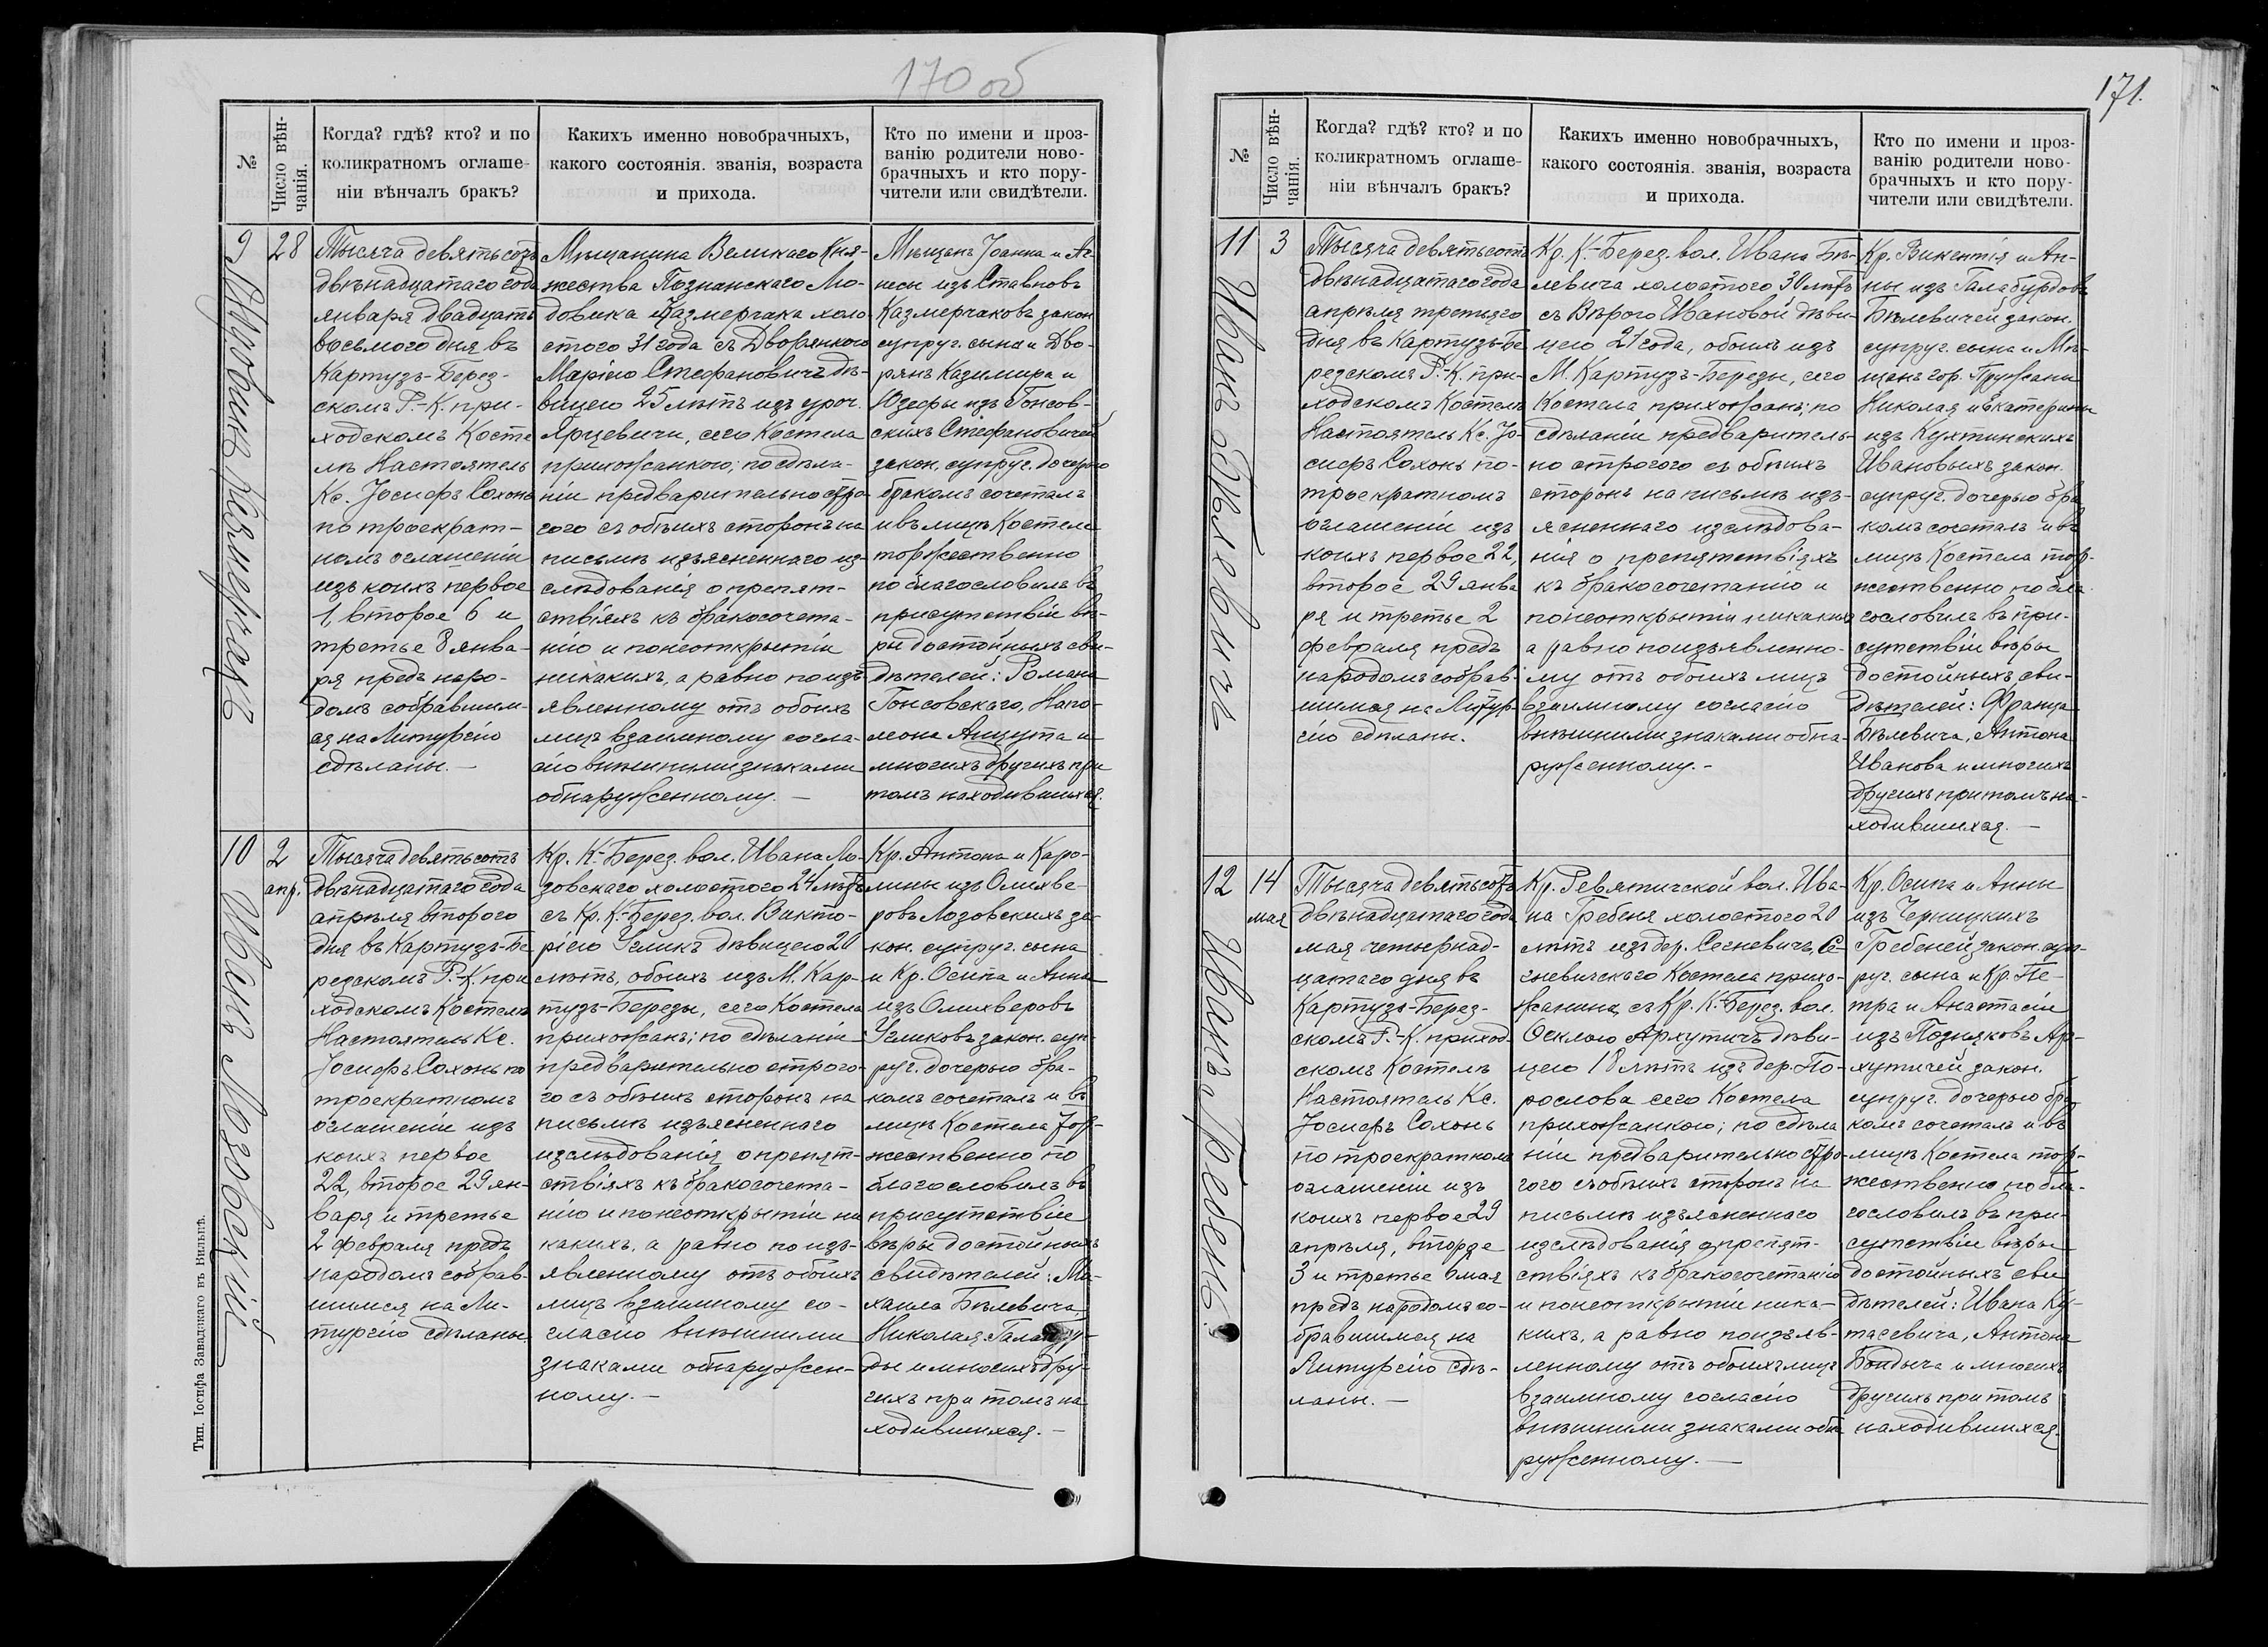 170 об
№
Число вѣн-
чанія.
Когда? гдѣ? кто? и по
коликратномъ оглаше-
ніи вѣнчалъ бракъ?
Какихъ именно новобрачныхъ,
какого состоянія. званія, возраста
и прихода.
Кто по имени и проз-
ванію родители ново-
брачныхъ и кто пору-
чители или свидѣтели.
9
28
Людовикъ Казмерчакъ
Тысяча девятьсотъ
двѣнадцатаго года
января двадцать
восьмого дня въ
Картузъ-Берез-
скомъ Р.-К. при-
ходскомъ Косте
лѣ Настоятель
Кс. Іосифъ Сохонь
по троекрат-
номъ оглашеніи
изъ коихъ первое
1, второе 6 и
третье 8 янва-
ря предъ наро-
домъ собравшим-
ся на Литургію
сдѣланы.—
Мѣщанина Великаго Кня-
жества Познанскаго Лю-
довика Казмерчака холо-
стого 31 года съ Дворянкою
Маріею Стефановичъ дѣ-
вицею 25 лѣтъ изъ уроч.
Ярцевичи, сего Костела
прихожанкою; по сдѣла-
ніи предварительно стро
гого съ обѣихъ сторонъ на
письмѣ изъясненнаго из-
слѣдованія о препят-
ствіяхъ къ бракосочета-
нію и понеоткрытіи
никакихъ, а равно по изъ
явленному отъ обоихъ
лицъ взаимному согла-
сію внѣшними знаками
обнаруженному.—
Мѣщанъ Іоанна и Аг-
несы изъ Ставновъ
Казмерчаковъ закон
супруг. сына и Дво-
рянъ Казимира и
Юзефы изъ Гонсов-
скихъ Стефановичей
закон. супруг. дочерью
бракомъ сочеталъ
и въ лицѣ Костела
торжественно
по благословилъ въ
присутствіи вѣ-
ры достойныхъ сви-
дѣтелей: Романа
Гонсовскаго, Напо-
леона Анцута и
многихъ другихъ при
томъ находившихся.
10
2
апр.
Иванъ Лозовскій
Тысяча девятьсотъ
двѣнадцатаго года
апрѣля второго
дня въ Картузъ-Бе
резскомъ Р.-К. при
ходскомъ Костелѣ
Настоятель Кс.
Іосифъ Сохонь по
троекратномъ
оглашеніи изъ
коихъ первое
22, второе 29 ян-
варя и третье
2 февраля предъ
народомъ собрав-
шимся на Ли-
тургію сдѣланы.
Кр. К.-Берез. вол. Ивана Ло-
зовскаго холостого 24 лѣтъ
съ Кр. К.-Берез. вол. Викто-
ріею Углик дѣвицею 20
лѣтъ, обоихъ изъ М. Кар-
тузъ-Березы, сего Костела
прихожанъ; по сдѣланіи
предварительно строго-
го съ обѣихъ сторонъ на
письмѣ изъясненнаго
изслѣдованія о препят-
ствіяхъ къ бракосочета-
нію и понеоткрытіи ни
какихъ, а равно по изъ-
явленному отъ обоихъ
лицъ взаимному со-
гласію внѣшними
знаками обнаружен-
ному.—
Кр. Антона и Каро-
лины изъ Олихве-
ровъ Лозовскихъ за-
кон. супруг. сына
и Кр. Осипа и Анны
изъ Олихверовъ
Угликовъ закон. суп-
руг. дочерью бра-
комъ сочеталъ и въ
лицѣ Костела тор-
жественно по
благословилъ въ
присутствіи
вѣры достойныхъ
свидѣтелей: Ми-
хаила Бѣлевича
Николая
ды и многихъ дру-
гихъ при томъ на
ходившихся.—
Тип. Іосифа Завадзкаго въ Вильнѣ.
171.
№
Число вѣн-
чанія.
Когда? гдѣ? кто? и по
коликратномъ оглаше-
ніи вѣнчалъ бракъ?
Какихъ именно новобрачныхъ,
какого состоянія. званія, возраста
и прихода.
Кто по имени и проз-
ванію родители ново-
брачныхъ и кто пору-
чители или свидѣтели.
11
3
Иванъ Бѣлевичъ
Тысяча девятьсотъ
двѣнадцатаго года
апрѣля третьяго
дня въ Картузъ-Бе
резскомъ Р.-К. при-
ходскомъ Костелѣ
Настоятель Кс. Іо-
сифъ Сохонь по-
троекратномъ
оглашеніи изъ
коихъ первое 22,
второе 29 янва
ря и третье 2
февраля предъ
народомъ собрав-
шимся на Литур-
гію сдѣланы.
Кр. К.-Берез. вол. Ивана Бѣ-
левича холостого 30 лѣтъ
съ Вѣрою Ивановой дѣви-
цею 21 года, обоихъ изъ
М. Картузъ-Березы, сего
Костела прихожанъ; по
сдѣланіи предваритель-
но строгого съ обѣихъ
сторонъ на письмѣ изъ-
ясненнаго изслѣдова-
нія о препятствіяхъ
къ бракосочетанію и
понеоткрытіи никакихъ
а равно поизъявленно-
му отъ обоихъ лицъ
взаимному согласію
внѣшними знаками обна-
руженному.—
Кр. Викентія и Ан-
ны изъ Галабурдовъ
Бѣлевичей закон.
супруг. сына и Мѣ-
щанъ гор. Пружаны
Николая и Екатерины
изъ Кухтинскихъ
Ивановыхъ закон.
супруг. дочерью бра
комъ сочеталъ и въ
лицѣ Костела тор-
жественно по бла
гословилъ въ при-
сутствіи вѣры
достойныхъ сви-
дѣтелей: Франца
Бѣлевича, Антона
Иванова и многихъ
другихъ при томъ на-
ходившихся.—
12
14
мая
Иванъ Гребень
Тысяча девятьсотъ
двѣнадцатаго года
мая четырнад-
цатаго дня въ
Картузъ-Берез-
скомъ Р.-К. приход-
скомъ Костелѣ
Настоятель Кс.
Іосифъ Сохонь
по троекратномъ
оглашеніи изъ
коихъ первое 29
апрѣля, второе
3 и третье 6 мая
предъ народомъ со-
бравшимся на
Литургію сдѣ-
ланы.—
Кр. Ревятичской вол. Ива-
на Гребеня холостого 20
лѣтъ изъ дер. Сегневичъ, Се-
гневичскаго Костела прихо-
жанина, съ Кр. К.-Берез. вол.
Феклою Архутичъ дѣви-
цею 18 лѣтъ изъ дер. По-
рослова сего Костела
прихожанкою; по сдѣла
ніи предварительно стро-
гого съ обѣихъ сторонъ на
письмѣ изъясненнаго
изслѣдованія о препят-
ствіяхъ къ бракосочетанію
и понеоткрытіи ника-
кихъ, а равно поизъяв-
ленному отъ обоихъ лицъ
взаимному согласію
внѣшними знаками обна
руженному.—
Кр. Осипа и Анны
изъ Черницкихъ
Гребеней закон. суп-
руг. сына и Кр. Пе-
тра и Анастасіи
изъ Поздняковъ Ар-
хутичей закон.
супруг. дочерью бра
комъ сочеталъ и въ
лицѣ Костела тор-
жественно по бла-
гословилъ въ при-
сутствіи вѣры
достойныхъ сви
дѣтелей: Ивана Ку-
тасевича, Антона
Бондыча и многихъ
другихъ при томъ
находившихся.